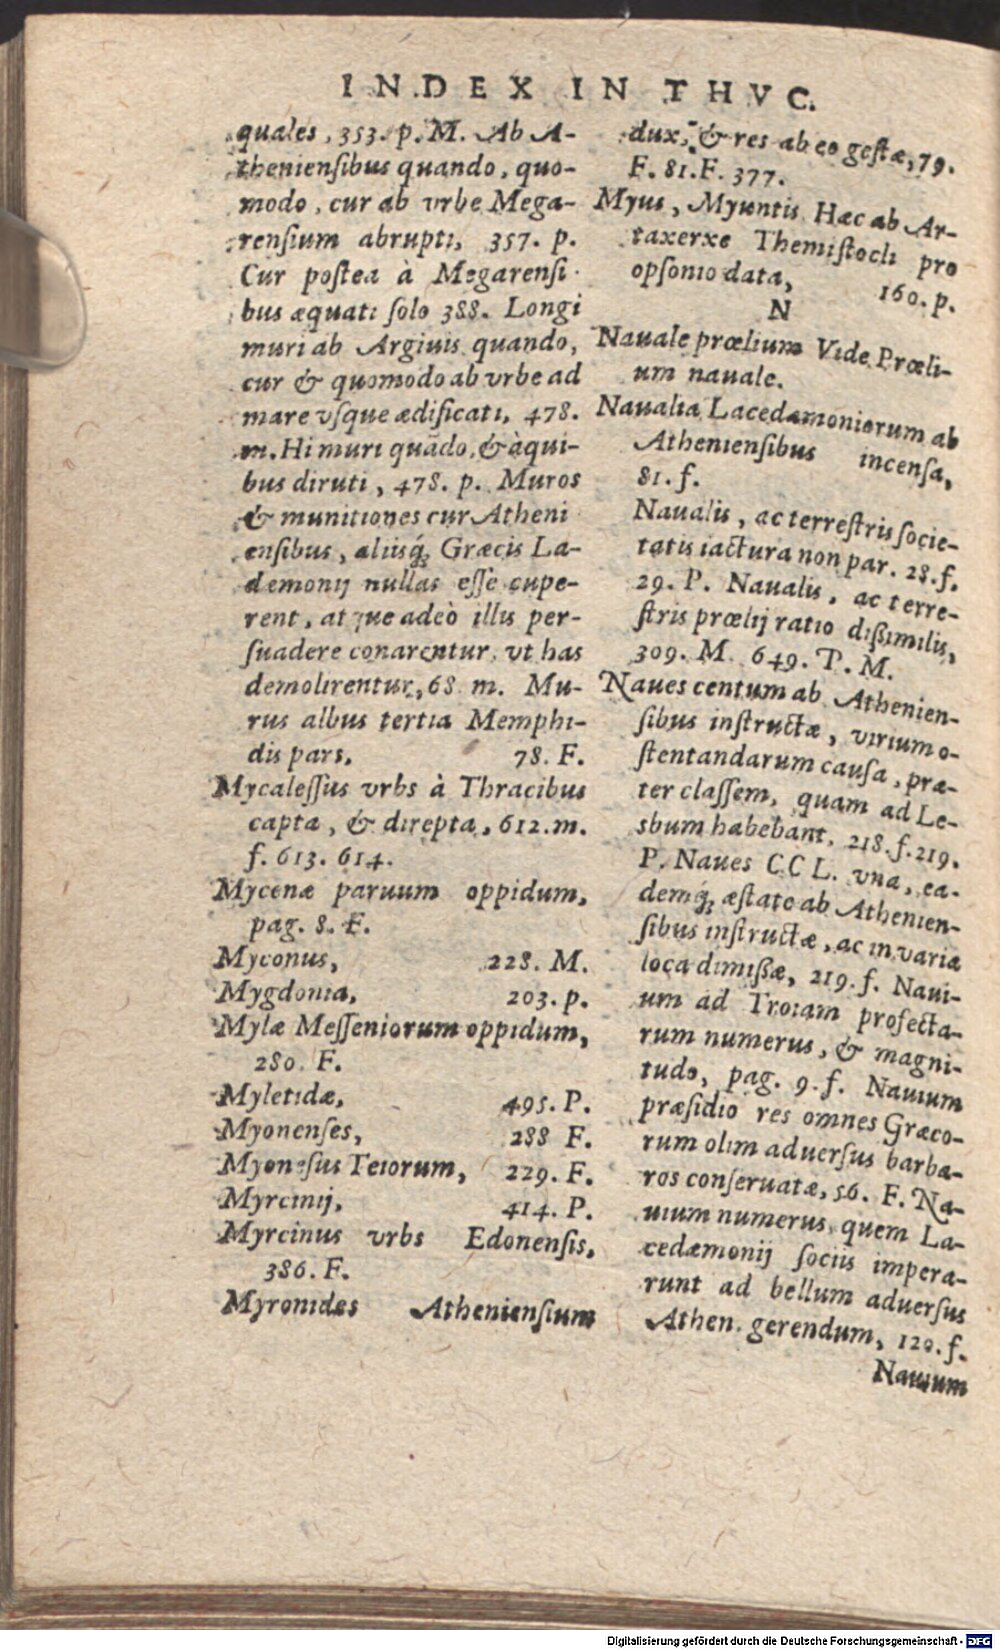 INDEX IN THVC.
quales, 353. p. M. Ab A-
theniensibus quando, quo-
modo, cur ab vrbe Mega-
rensium abrupti, 357. p.
Cur postea à Megarensi-
bus æquati solo 388. Longi
muri ab Argiuis quando,
cur & quomodo ab vrbe ad
mare vsque ædificati, 478.
m. Hi muri quãdo, & àqui-
bus diruti, 478. p. Muros
& munitiones cur Atheni
ensibus, aliisq́; Græcis La-
demonij nullas esse cupe-
rent, atque adeò illis per-
suadere conarentur, vt has
demolirentur, 68. m. Mu-
rus albus tertia Memphi-
dis pars, 78. F.
Mycalessus vrbs à Thracibus
capta, & direpta, 612. m.
f. 613. 614.
Mycenæ paruum oppidum,
pag. 8. F.
Myconus, 228. M.
Mygdonia, 203. p.
Mylæ Messeniorum oppidum,
280. F.
Myletidæ, 495. P.
Myonenses, 288 F.
Myonesus Teiorum, 229. F.
Myrcinij, 414. P.
Myrcinus vrbs Edonensis,
386. F.
Myronides Atheniensium
dux, & res ab eo gestæ, 79.
F. 81. F. 377.
Myus, Myuntis Hæc ab Ar-
taxerxe Themistocli pro
opsonio data, 160. p.
N
Nauale prœlium Vide Prœli-
um nauale.
Naualia Lacedæmoniorum ab
Atheniensibus incensa,
81. f.
Naualis, ac terrestris socie-
tatis iactura non par. 28. f.
29. P. Naualis, ac terre-
stris prœlij ratio dißimilis,
309. M. 649. P. M.
Naues centum ab Athenien-
sibus instructæ, virium o-
stentandarum causa, præ-
ter classem, quam ad Le-
sbum habebant, 218. f. 219.
P. Naues CCL. vna, ea-
demq́; æstate ab Athenien-
sibus instructæ, ac in varia
loca dimißæ, 219. f. Naui-
um ad Troiam profecta-
rum numerus, & magni-
tudo, pag. 9. f. Nauium
præsidio res omnes Græco-
rum olim aduersus barba-
ros conseruatæ, 56. F. Na-
uium numerus, quem La-
cedæmonij sociis impera-
runt ad bellum aduersus
Athen. gerendum, 120. f.
Nauium
Digitalisierung gefördert durch die Deutsche Forschungsgemeinschaft - DFG